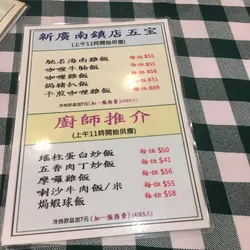 新廣南鎮店五宝
(上午11時開始供應)
馳名海南雞飯 每位$55
咖喱牛腩飯 每位$51
咖喱雞飯
干煎咖喱雞飯 每位$51
冷熱飲品加7元(加一服務費)
廚師推介
(上午11時開始供應)
瑤柱蛋白炒飯 每位$50
五香肉丁炒飯 每位$41
摩囉雞飯 每位$56
喇沙牛肉飯/米 每位$55
焗蝦球飯 每位$58
冷熱飲品加7元(加一服務費)